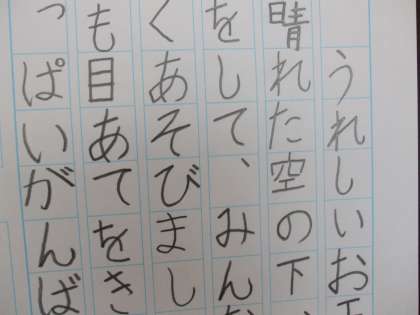 うれしいお
晴れた空の下
をして、みん
くあそびまし
も目あてをき
っぱいがんば